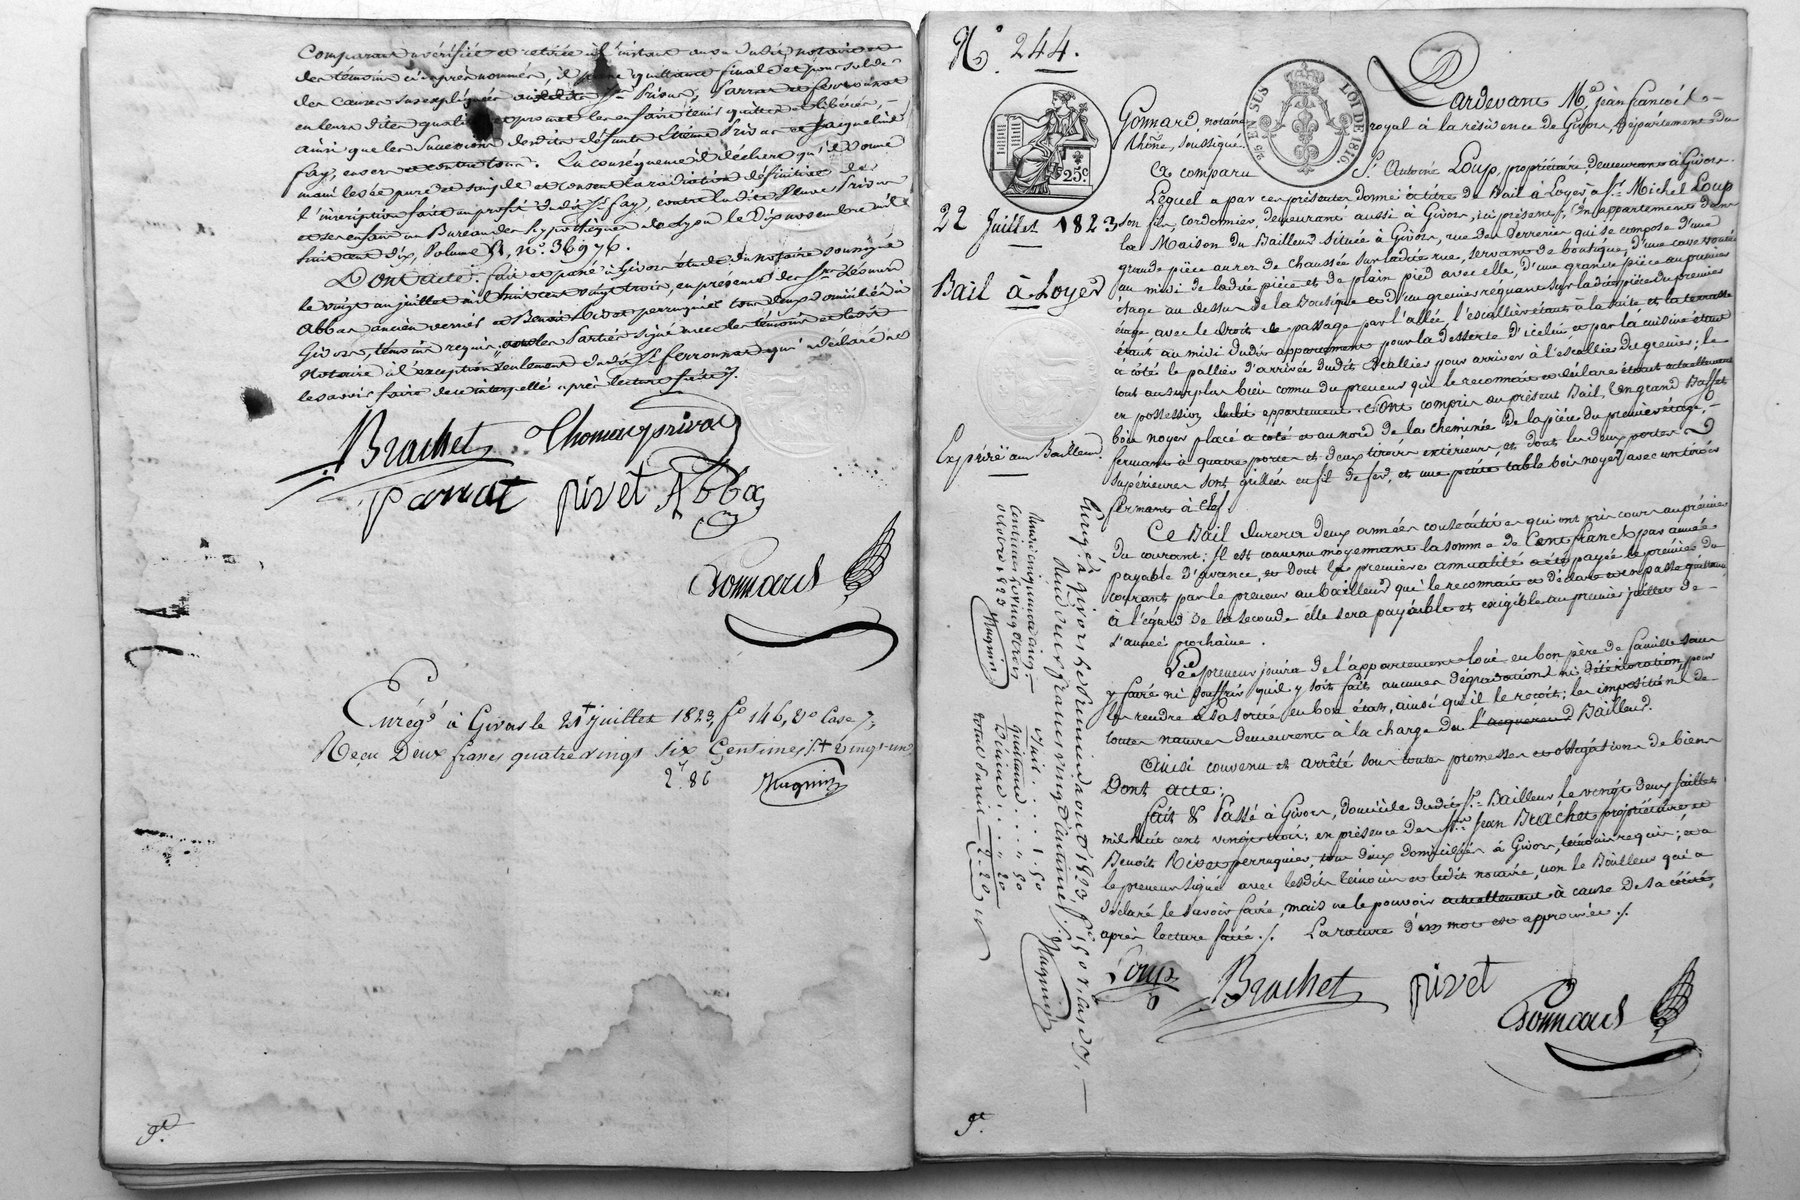 Comparant vérifiée et retirée à l'instant au vu dudit notaire et
des témoins ci-après nommés, il quittance finale et pour solde
des causes susexpliquées auxdits Srs Privas, Parrat et ferronnat
en leurs dites et promet les en faire tenir quittes et libérés, —
ainsi que les successions desdits défunts Etienne Privas et Jaqueline
fay, envers et contre tous. En conséquence il déclare qu'il donne
main levée pure et simple et consent la radiation définitive de
l'inscription faite au profit dudit Sr fay, contre ladite Veuve Privas
et ses enfans au Bureau des hypothèques de Lyon le Dix novembre mil
huit cent dix, Volume 51, no. 36976.
Dont acte. fait et passé à Givors étude du notaire soussigné
le vingt un juillet mil huit cent vingt trois, en présence des Srs
Abbas ancien verrier et Benoit Rivet perruquier tous deux domiciliés à
Givors, témoins requis, les Parties signé avec les témoins et ledit
Notaire à l'exception seulement dudit Sr ferronnat qui a déclaré ne
le savoir faire de ce interpellé après lecture faite ./.
Brachet Thomas privas
parrat pivet Abbas
Gonnard
Enregé à Givors le 21 juillet 1823, fo 146, Vo Case 7,
Reçu Deux francs quatre vingt six Centimes St vingt un
2f 86 Hugnin
9e
No. 244.
EN SUS LOI DE 1816
25 c
Pardevant Me. jean françois —
Gonnard, notaire royal à la résidence de Givors, Département du
Rhône, soussigné.
A comparu Sr. Antoine Loup, propriétaire, demeurant à Givors.
Lequel a par ces présentes donné à titre de Bail à Loyer à Sr. Michel Loup
22 Juillet 1823
son fils, cordonnier, demeurant aussi à Givors, ici présent, Un appartement dans
la Maison du Bailleur située à Givors, rue des Verreries qui se compose d'une
grande pièce au rez de chaussée sur ladite rue, servant de boutique, d'une cave voutée
Bail à Loyer
au midi de ladite pièce et de plain pied avec elle, d'une grande pièce au premier
étage au dessus de la Boutique et d'un grenier régnant sur ladite pièce du premier
étage, avec le droit de passage par l'allée l'escallier étant à la suite et la terrasse
étant au midi dudit appartement pour la desserte d'icelui et par la cuisine étant
à côté le pallier d'arrivée dudit Escallier pour arriver à l'escallier du grenier; le
tout au surplus bien connu du preneur qui le reconnait et déclare étant actuellement
en possession dudit appartement. Sont compris au présent Bail, Un grand Buffet
bois noyer placé à coté et au nord de la cheminée de la pièce du premier étage, —
Expédié au Bailleur.
fermant à quatre portes et deux tiroirs extérieurs, et dont les deux portes
supérieures sont grillées en fil de fer, et une petite table bois noyer avec un tiroir
fermant à clef.
Ce Bail durera deux années consécutives qui ont pris cours au premier
du courant; Il est convenu moyennant la somme de Cent francs par année
payable d'avance, et dont la première annualité a été payée le premier du
courant par le preneur au bailleur qui le reconnait et déclare et en passe quittance
à l'égard de la seconde elle sera payable et exigible au premier juillet de —
l'année prochaine.
Le preneur jouira de l'appartement loué en bon père de famille sans
y faire ni souffrir qu'il y soit fait aucunes dégradations ni détérioration, pour
les rendre à sa sortie en bon état, ainsi qu'il le reçoit; les impositions de
toutes natures demeurent à la charge du l'acquereur Bailleur.
Ainsi convenu et arrêté sous toutes promesses et obligations de biens
Dont acte:
fait & Passé à Givors, domicile dudit Sr. Bailleur le vingt deux juillet
mil huit cent vingt trois; en présence des Srs. Jean Brachet propriétaire et
Benoit Rivet perruquier, tous deux domiciliés à Givors, témoins requis; et a
le preneur signé avec lesdits témoins et ledit notaire, non le Bailleur qui a
déclaré le savoir faire, mais ne le pouvoir actuellement à cause de sa cécité,
après lecture faite ./. La rature d'un mot est approuvée ./.
Loup Brachet pivet
Gonnard
Enregé à Givors le deux aout 1823, fo 150 r. Case 7, —
Reçu deux francs vingt Centimes
Hugnin
Bail . . . 1.50
Quittance . . . " 50
Décime . . . " 20
Total deux 2.20
Hugnin
9e.